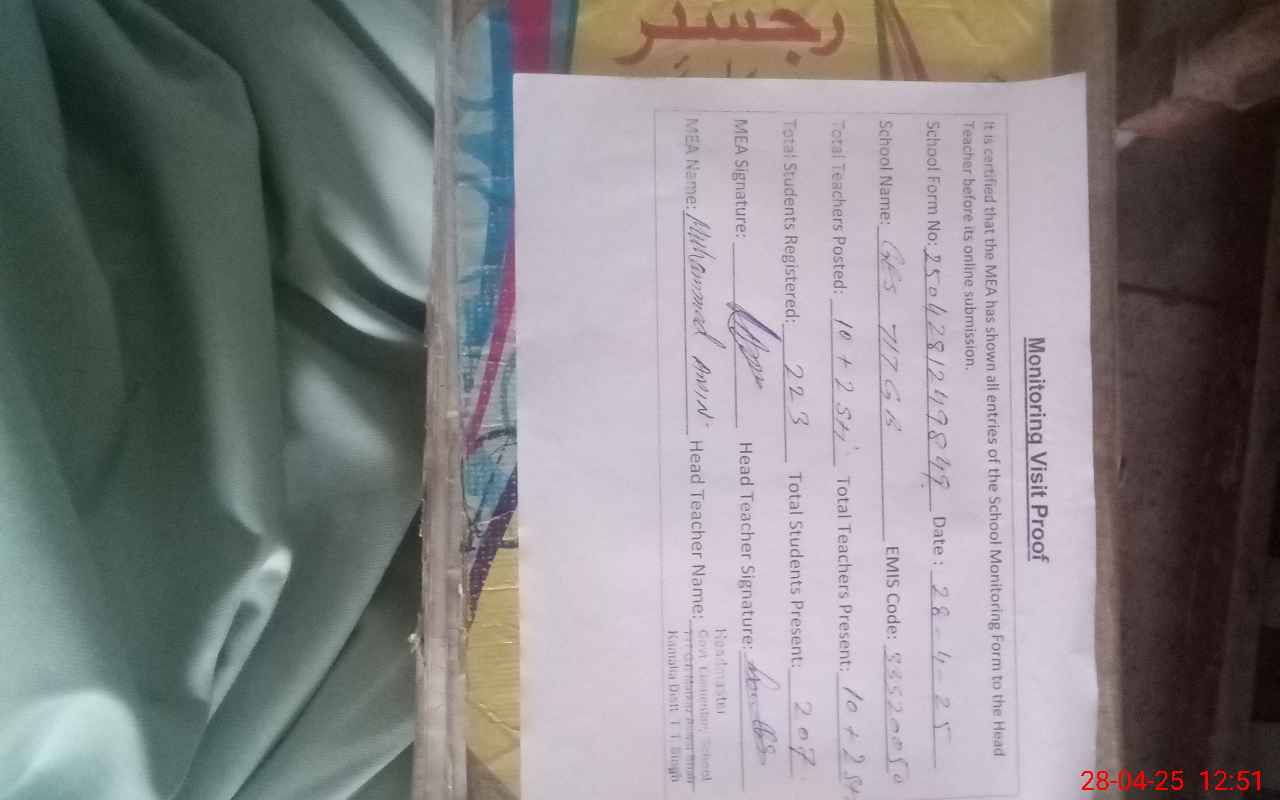 رجسٹر
Monitoring Visit Proof
It is certified that the MEA has shown all entries of the School Monitoring Form to the Head
Teacher before its online submission.
School Form No: 2504281249849 Date : 28-4-25
School Name: GES 717 GB EMIS Code:
Total Teachers Posted: 10 + 2 STI Total Teachers Present: 10 + 2
Total Students Registered: 223 Total Students Present: 207
MEA Signature: Head Teacher Signature:
MEA Name: Muhammad AMIN Head Teacher Name:
Headmaster
Govt. Elementary School
Kamalia Distt. T.T. Singh
28-04-25 12:51